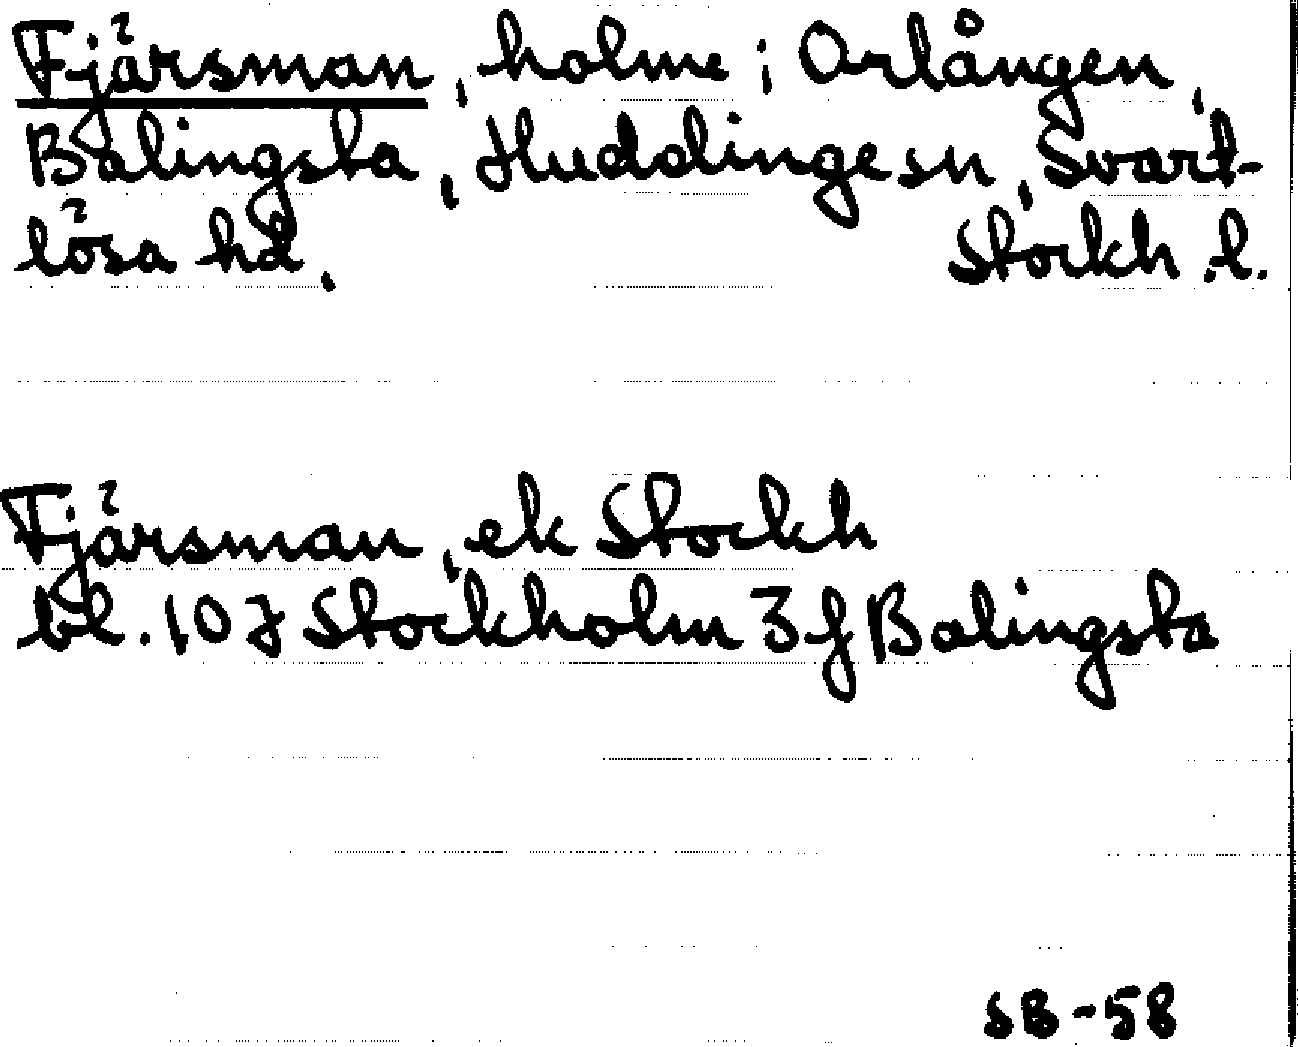 Fjärsman, holme i Orlången,
Balingsta, Huddinge sn, Svart-
lösa hd. Stockh. l.
Fjärsman, ek Stockh
bl. 10 J Stockholm 3 f Balingsta
SB-58